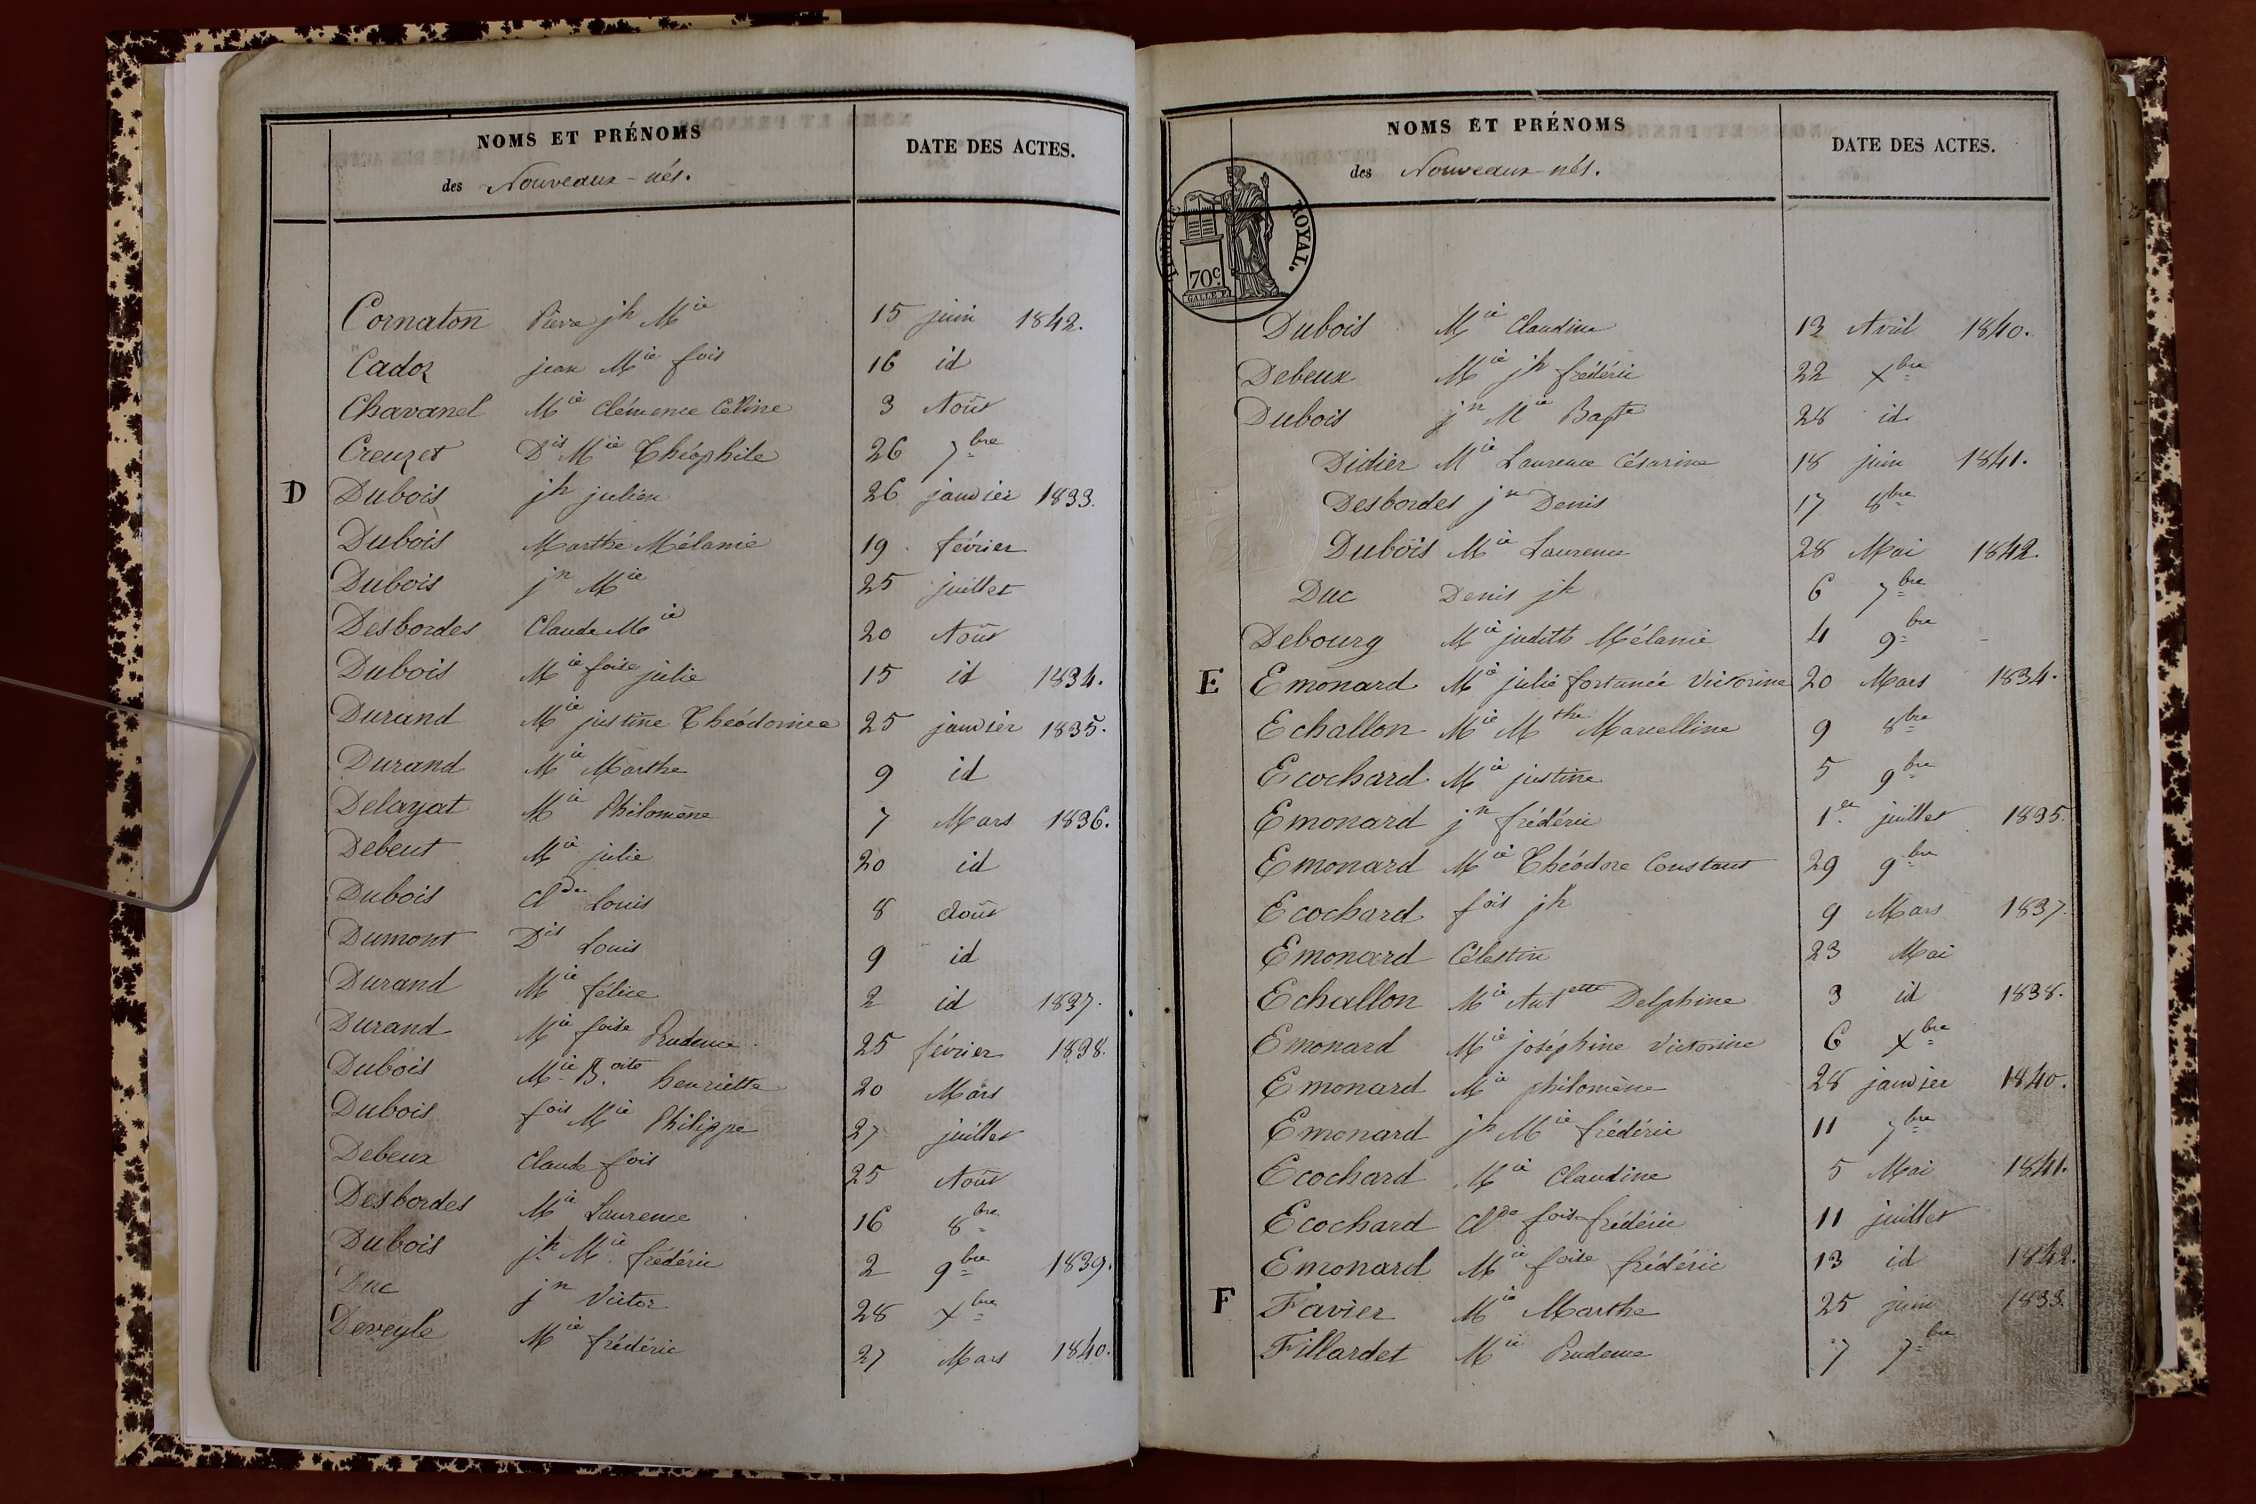 NOMS ET PRÉNOMS
des Nouveaux-nés.
DATE DES ACTES.
Cornaton Pierre jh Mie 15 juin 1842.
Cadoz jean Mie fois 16 id
Chavanel Mie Clémence Céline 3 Août
Creuzet Dis Mie Théophile 26 7bre
D Dubois jh julien 26 janvier 1833.
Dubois Marthe Mélanie 19 février
Dubois jn Mie 25 juillet
Desbordes Claude Mie 20 Août
Dubois Mie foise julie 15 id 1834.
Durand Mie justine Théodorine 25 janvier 1835.
Durand Mie Marthe 9 id
Delayat Mie Philomène 7 Mars 1836.
Debeut Mie julie 20 id
Dubois Clde Louis 8 Août
Dumont Dis Louis 9 id
Durand Mie félice 2 id 1837.
Durand Mie foise Prudence 25 février 1838.
Dubois Mie henriette 20 Mars
Dubois fois Mie Philippe 27 juillet
Debeux Claude fois 25 Août
Desbordes Mie Laurence 16 8bre
Dubois jh Mie frédéric 2 9bre 1839.
Duc jn Victor 28 Xbre
Deveyle Mie frédéric 27 Mars 1840.
NOMS ET PRÉNOMS
des Nouveaux-nés.
DATE DES ACTES.
TIMBRE ROYAL.
70c
Dubois Mie Claudine 13 Avril 1840.
Debeux Mie jh frédéric 22 Xbre
Dubois jn Mie Bapte 28 id
Didier Mie Laurence Césarine 18 juin 1841.
Desbordes jn Denis 17 8bre
Dubois Mie Laurence 28 Mai 1842.
Duc Denis jh 6 7bre
Debourg Mie judith Mélanie 4 9bre
E Emonard Mie julie fortunée Victorine 20 Mars 1834.
Echallon Mie Mthe Marcelline 9 8bre
Ecochard Mie justine 5 9bre
Emonard jn frédéric 1er juillet 1835.
Emonard Mie Théodore Constant 29 9bre
Ecochard fois jh 9 Mars 1837.
Emonard Célestin 23 Mai
Echallon Mie Antette Delphine 3 id 1838.
Emonard Mie joséphine Victorine 6 Xbre
Emonard Mie philomène 28 janvier 1840.
Emonard jh Mie frédéric 11 7bre
Ecochard Mie Claudine 5 Mai 1841.
Ecochard Clde fois frédéric 11 juillet
Emonard Mie foise frédéric 13 id 1842.
F Favier Mie Marthe 25 juin 1833.
Fillardet Mie Prudence 7 7bre